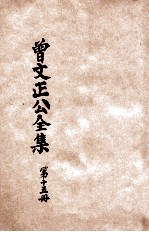 曾文正公全集
第十五冊